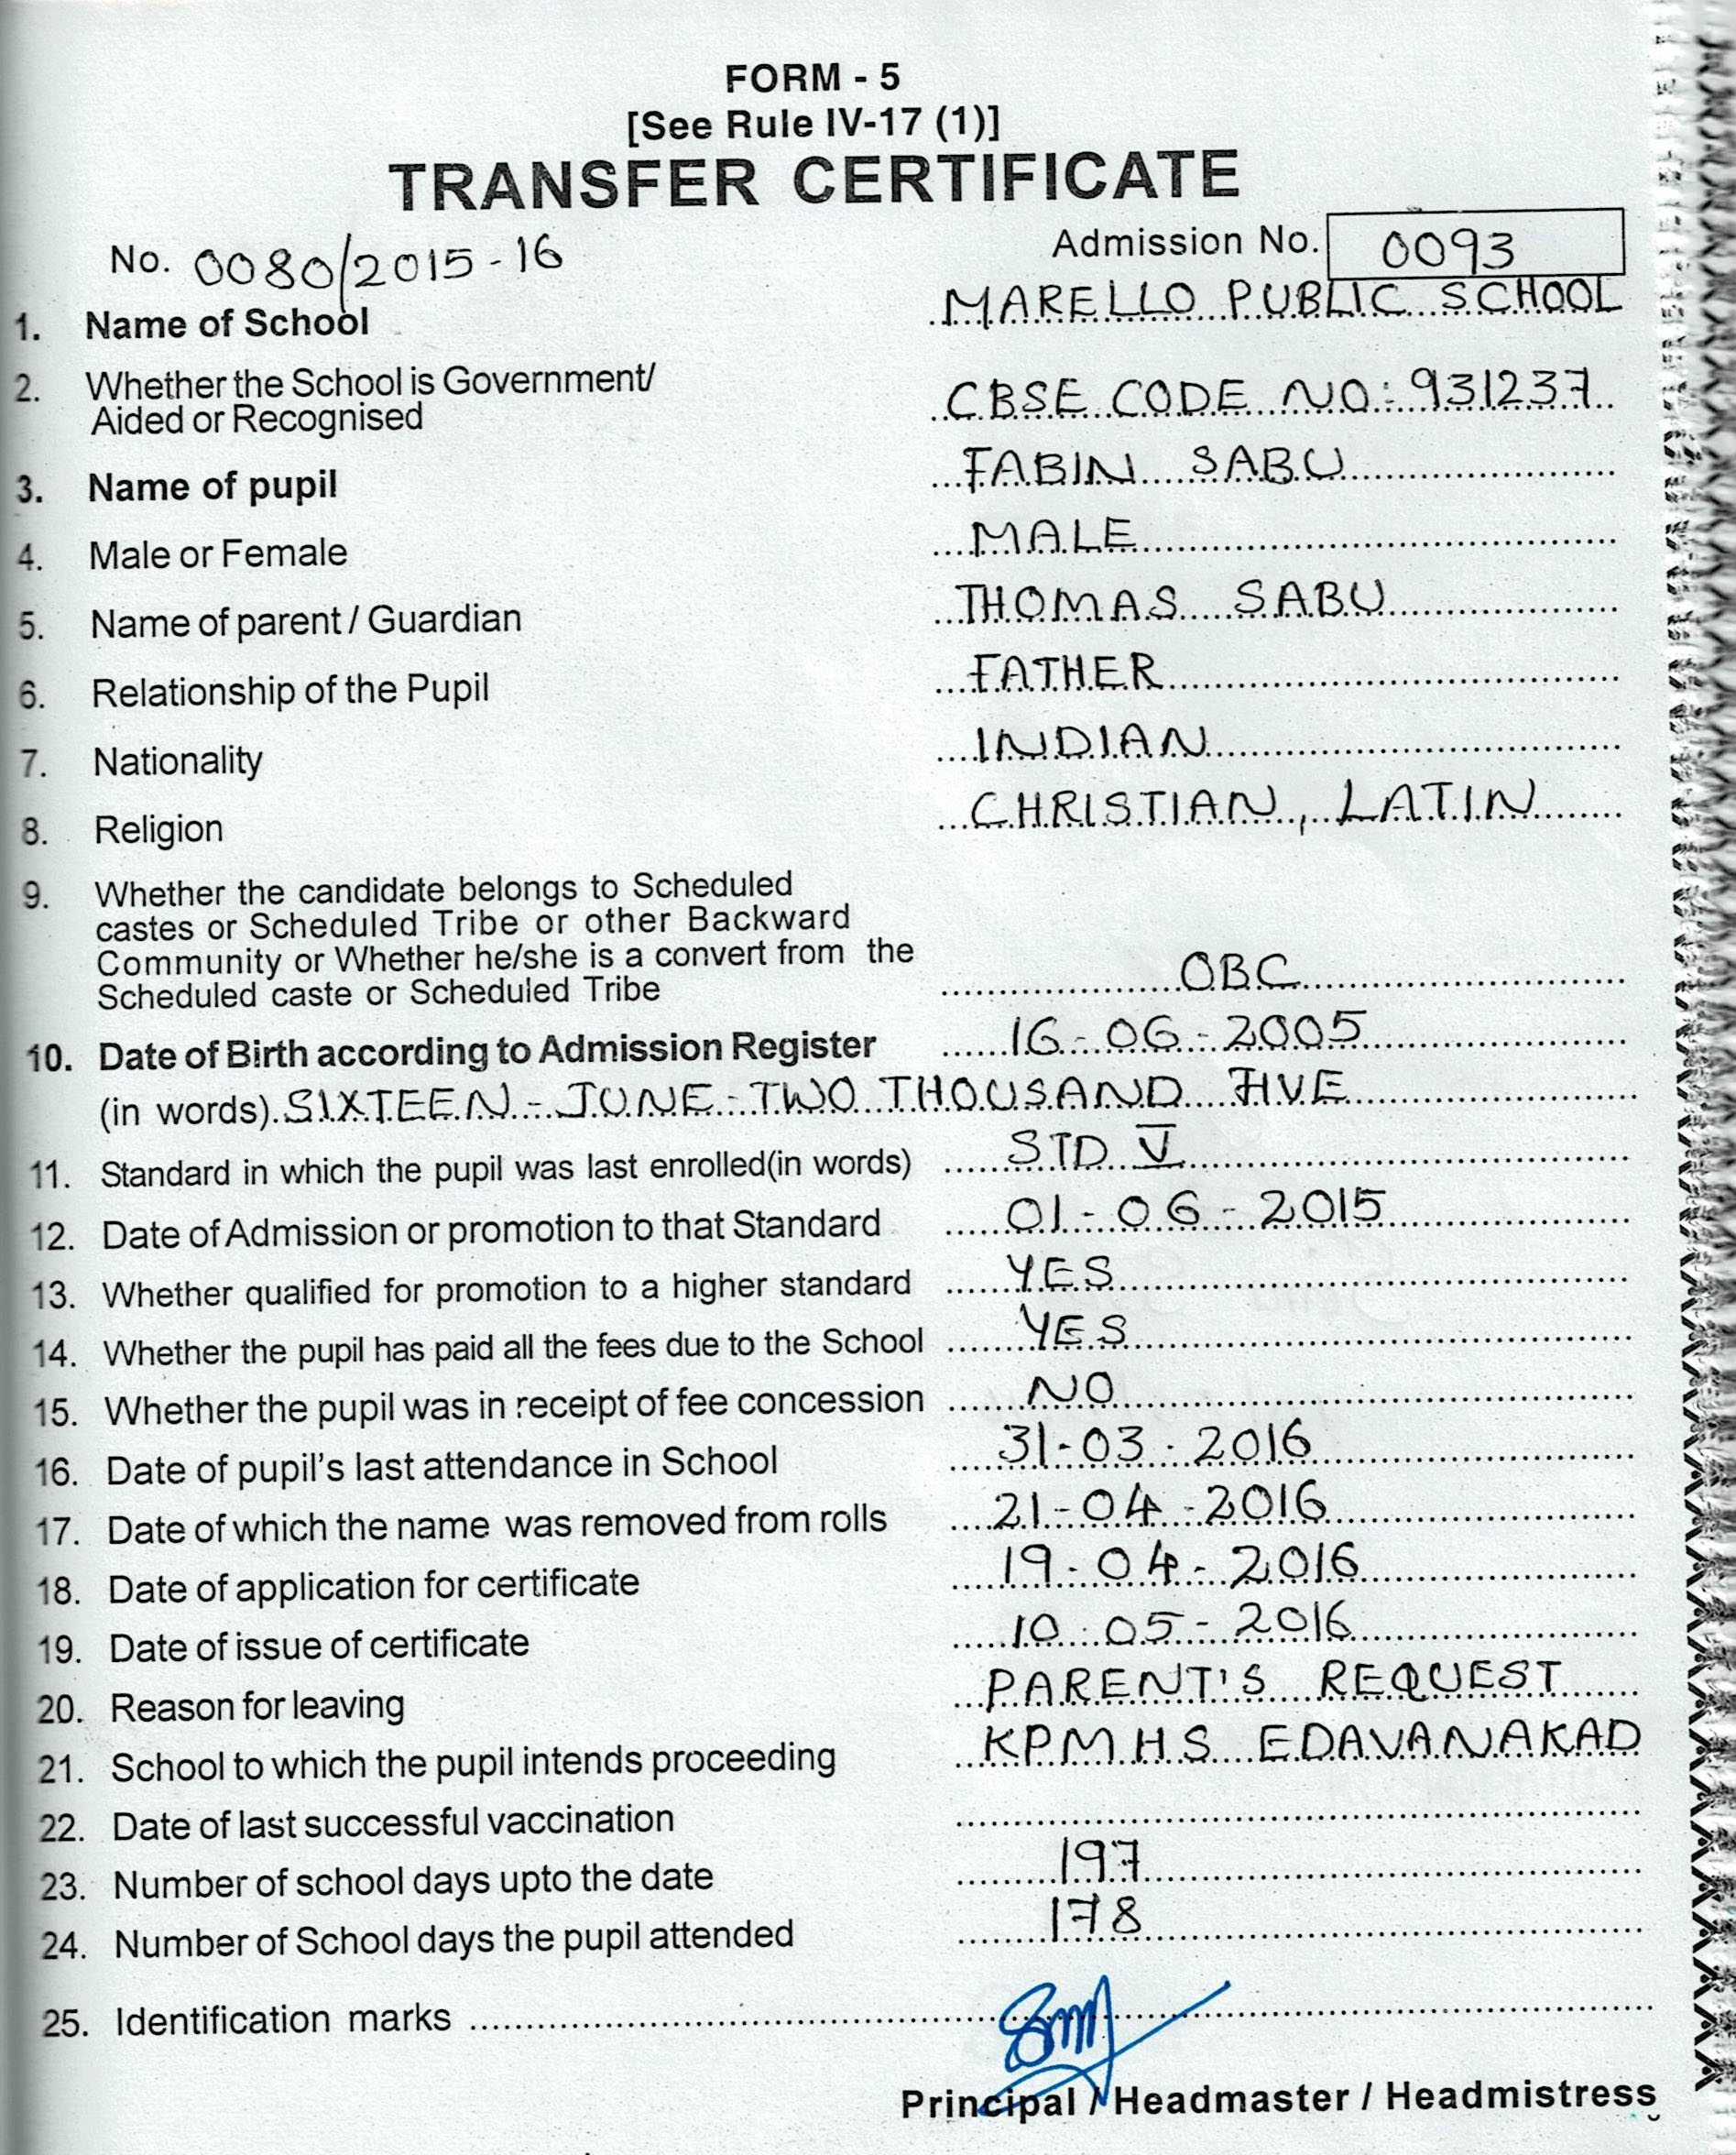 FORM - 5
[See Rule IV-17 (1)]
TRANSFER CERTIFICATE
No. 0080/2015-16 Admission No. 0093
1. Name of School MARELLO PUBLIC SCHOOL
2. Whether the School is Government/
Aided or Recognised CBSE CODE NO: 931237
3. Name of pupil FABIN SABU
4. Male or Female MALE
5. Name of parent / Guardian THOMAS SABU
6. Relationship of the Pupil FATHER
7. Nationality INDIAN
8. Religion CHRISTIAN, LATIN
9. Whether the candidate belongs to Scheduled
castes or Scheduled Tribe or other Backward
Community or Whether he/she is a convert from the
Scheduled caste or Scheduled Tribe OBC
10. Date of Birth according to Admission Register 16-06-2005
(in words) SIXTEEN - JUNE - TWO THOUSAND FIVE
11. Standard in which the pupil was last enrolled(in words) STD V
12. Date of Admission or promotion to that Standard 01-06-2015
13. Whether qualified for promotion to a higher standard YES
14. Whether the pupil has paid all the fees due to the School YES
15. Whether the pupil was in receipt of fee concession NO
16. Date of pupil's last attendance in School 31-03-2016
17. Date of which the name was removed from rolls 21-04-2016
18. Date of application for certificate 19-04-2016
19. Date of issue of certificate 10-05-2016
20. Reason for leaving PARENT'S REQUEST
21. School to which the pupil intends proceeding KPMHS EDAVANAKAD
22. Date of last successful vaccination
23. Number of school days upto the date 197
24. Number of School days the pupil attended 178
25. Identification marks
Principal / Headmaster / Headmistress